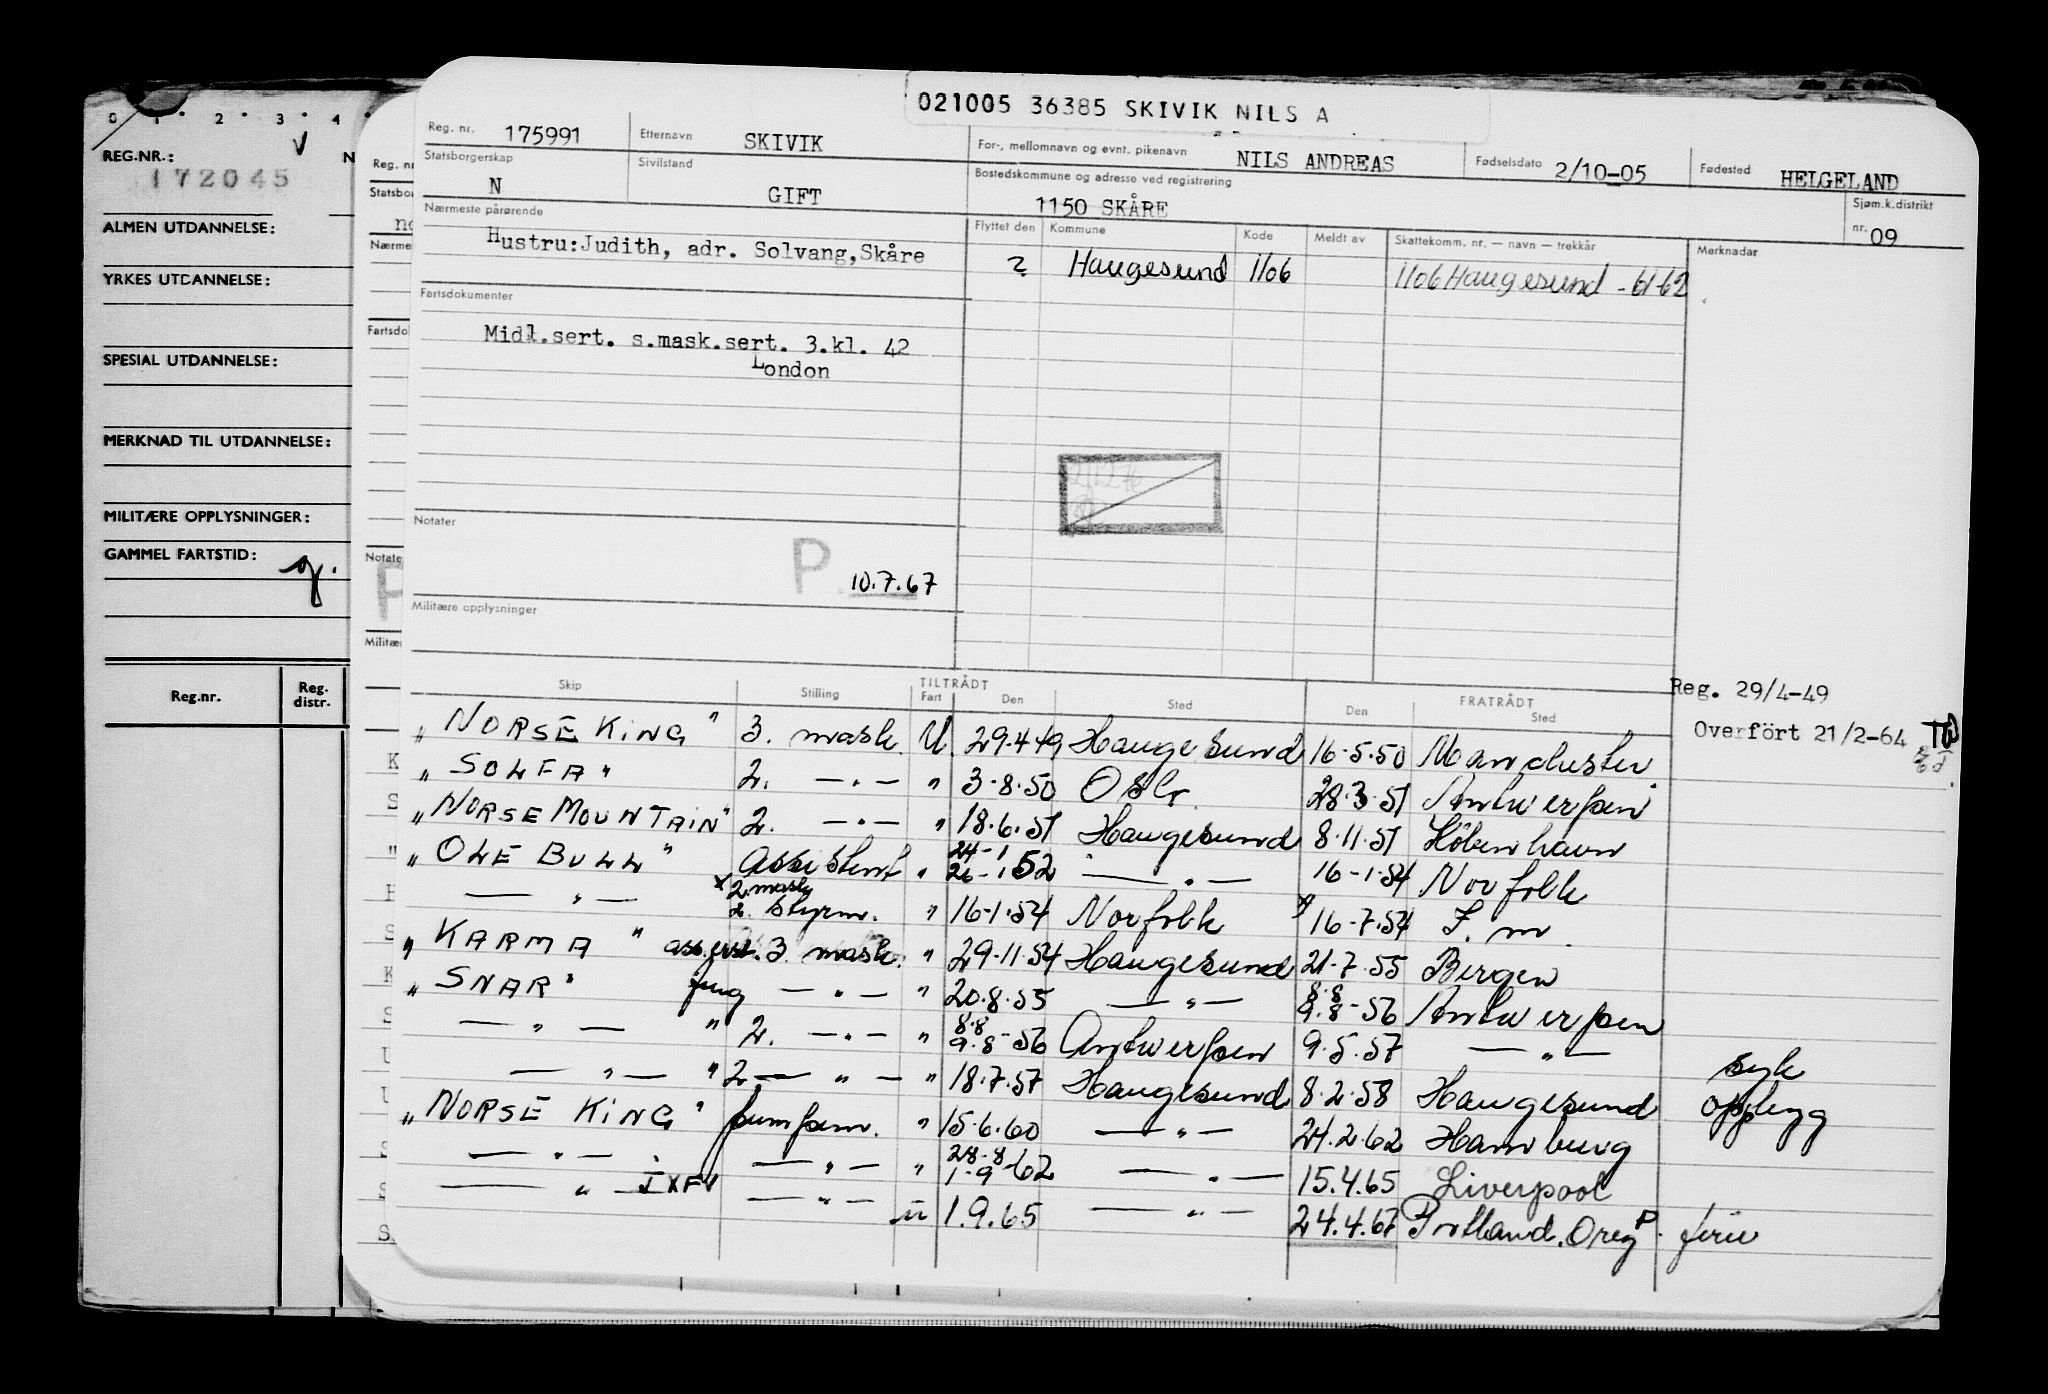 021005 36385 SKIVIK NILS A
0 1 . 2 . 3 . 4 .
REG.NR.: N
172045
ALMEN UTDANNELSE:
YRKES UTDANNELSE:
SPESIAL UTDANNELSE:
MERKNAD TIL UTDANNELSE:
MILITÆRE OPPLYSNINGER:
GAMMEL FARTSTID:
Reg.nr. Reg. distr.
Reg. nr. 175991 Etternavn SKIVIK For-, mellomnavn og evnt. pikenavn NILS ANDREAS Fødselsdato 2/10-05 Fødested HELGELAND
Statsborgerskap N Sivilstand GIFT Bostedskommune og adresse ved registrering 1150 SKÅRE Sjøm.k.distrikt nr. 09
Nærmeste pårørende Flyttet den Kommune Kode Meldt av Skattekomm. nr. — navn — trekkår Merknadar
Hustru:Judith, adr. Solvang,Skåre ? Haugesund 1106 1106 Haugesund - 61-62
Fartsdokumenter
Midl.sert. s.mask.sert. 3.kl. 42
London
Notater
P 10.7.67
Militære opplysninger
Reg. 29/4-49
Overfört 21/2-64
Skip Stilling TILTRÅDT Fart Den Sted FRATRÅDT Den Sted
"NORSE KING" 3. mask. U 29.4.49 Haugesund 16-5-50 Manchester
"SOLFA" 2. — " — " 3-8-50 Oslo 28.3.51 Antwerpen
"NORSE MOUNTAIN" 2. — " — " 18.6.51 Haugesund 8.11.51 Köbenhavn
"OLE BULL" Assistent " 24-1 26-1 52 — " — 16-1-54 Norfolk
— " — x 2. mask 2. styrm. " 16-1-54 Norfolk 16-7-54 F. m.
"KARMA" 3. mask. " 29-11-54 Haugesund 21.7.55 Bergen
"SNAR" fung — " — " 20.8.55 — " — 8.8 9.8-56 Antwerpen
— " — " 2. — " — " 8.8 9.8-56 Antwerpen 9.5.57 — " — syk
— " — " 2 — " — " 18.7.57 Haugesund 8.2.58 Haugesund opplegg
"NORSE KING" pumpem. " 15.6.60 — " — 24.2.62 Hamburg
— " — — " — " 28-8 1-9-62 — " — 15.4.65 Liverpool
— " — JXFV — " — u 1.9.65 — " — 24.4.67 Portland. Oreg P. ferie